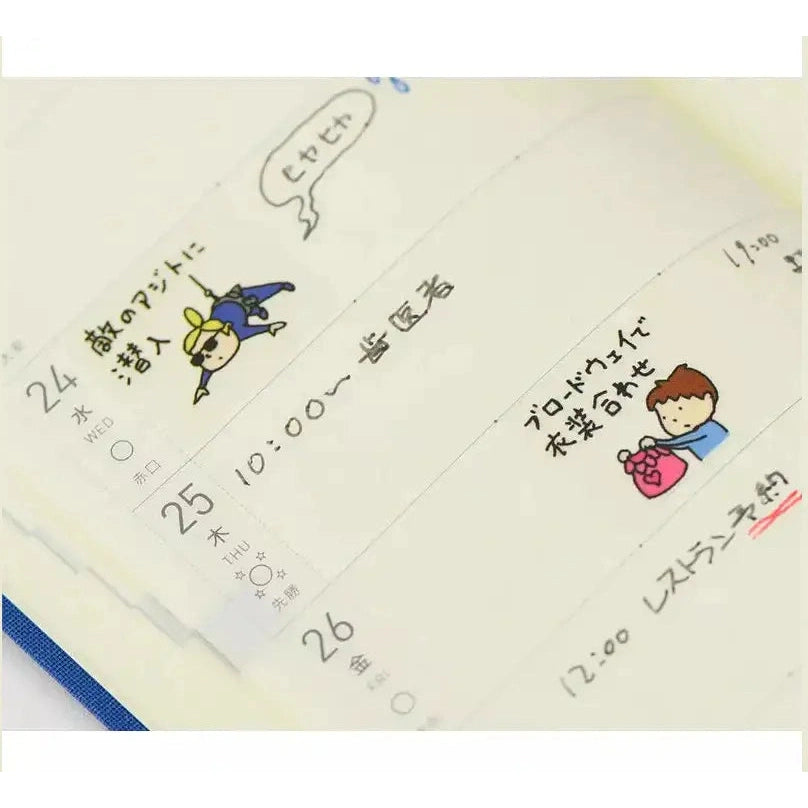 ヒヤヒヤ
敵のアジトに
潜入
24
水
WED
赤口
10:00〜 歯医者
25
木
THU
先勝
19:00
ブロードウェイで
衣装合わせ
12:00 レストラン予約
26
金
FRI